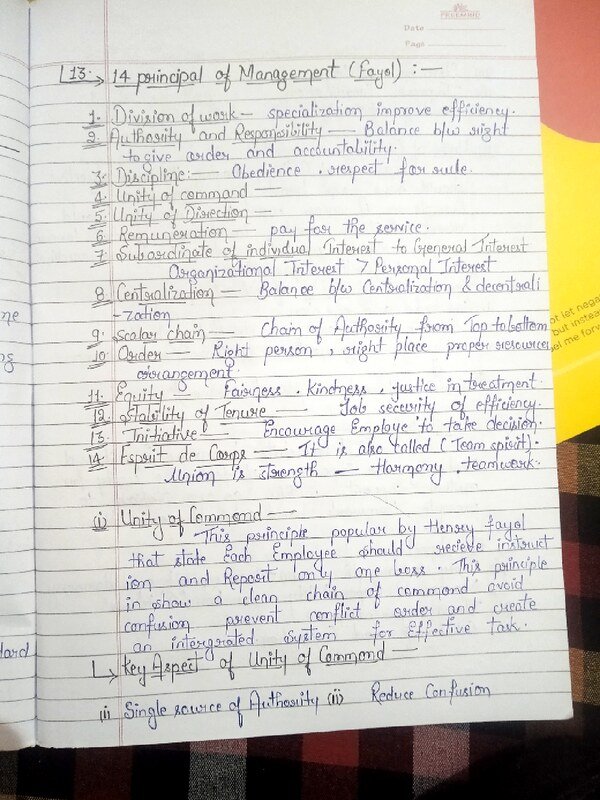 FREEMIND
Date
Page
13. 14 principal of Management (fayol) :—
1. Division of work — specialization improve efficiency.
2. Authority and Responsibility — Balance b/w right
to give order and accountability.
3. Discipline:— Obedience, respect for rule.
4. Unity of command —
5. Unity of Direction —
6. Remuneration — pay for the service.
7. Subordinate of individual Interest to General Interest
Organizational Interest > Personal Interest
8. Centralization — Balance b/w Centralization & decentrali
-zation
9. Scalar chain — Chain of Authority from Top to bottom
10. Order — Right person, right place proper resource
arrangement.
11. Equity — Fairness, Kindness, justice in treatment
12. Stability of Tenure — Job security of efficiency.
13. Initiative — Encourage Employe to take decision.
14. Esprit de Corps — It is also called (Team spirit).
Union is strength — Harmony, teamwork.
(i) Unity of Commond —
This principle popular by Henry fayol
that state Each Employee should recieve instruct
ion and Reposit only one boss. This principle
in show a clean chain of commond avoid
confusion, prevent conflict order and create
an intergrated system for Effective task.
Key Aspect of Unity of Commond —
(i) Single source of Authority (ii) Reduce Confusion
ot let nega
but instea
el me forw
me
ng
dard